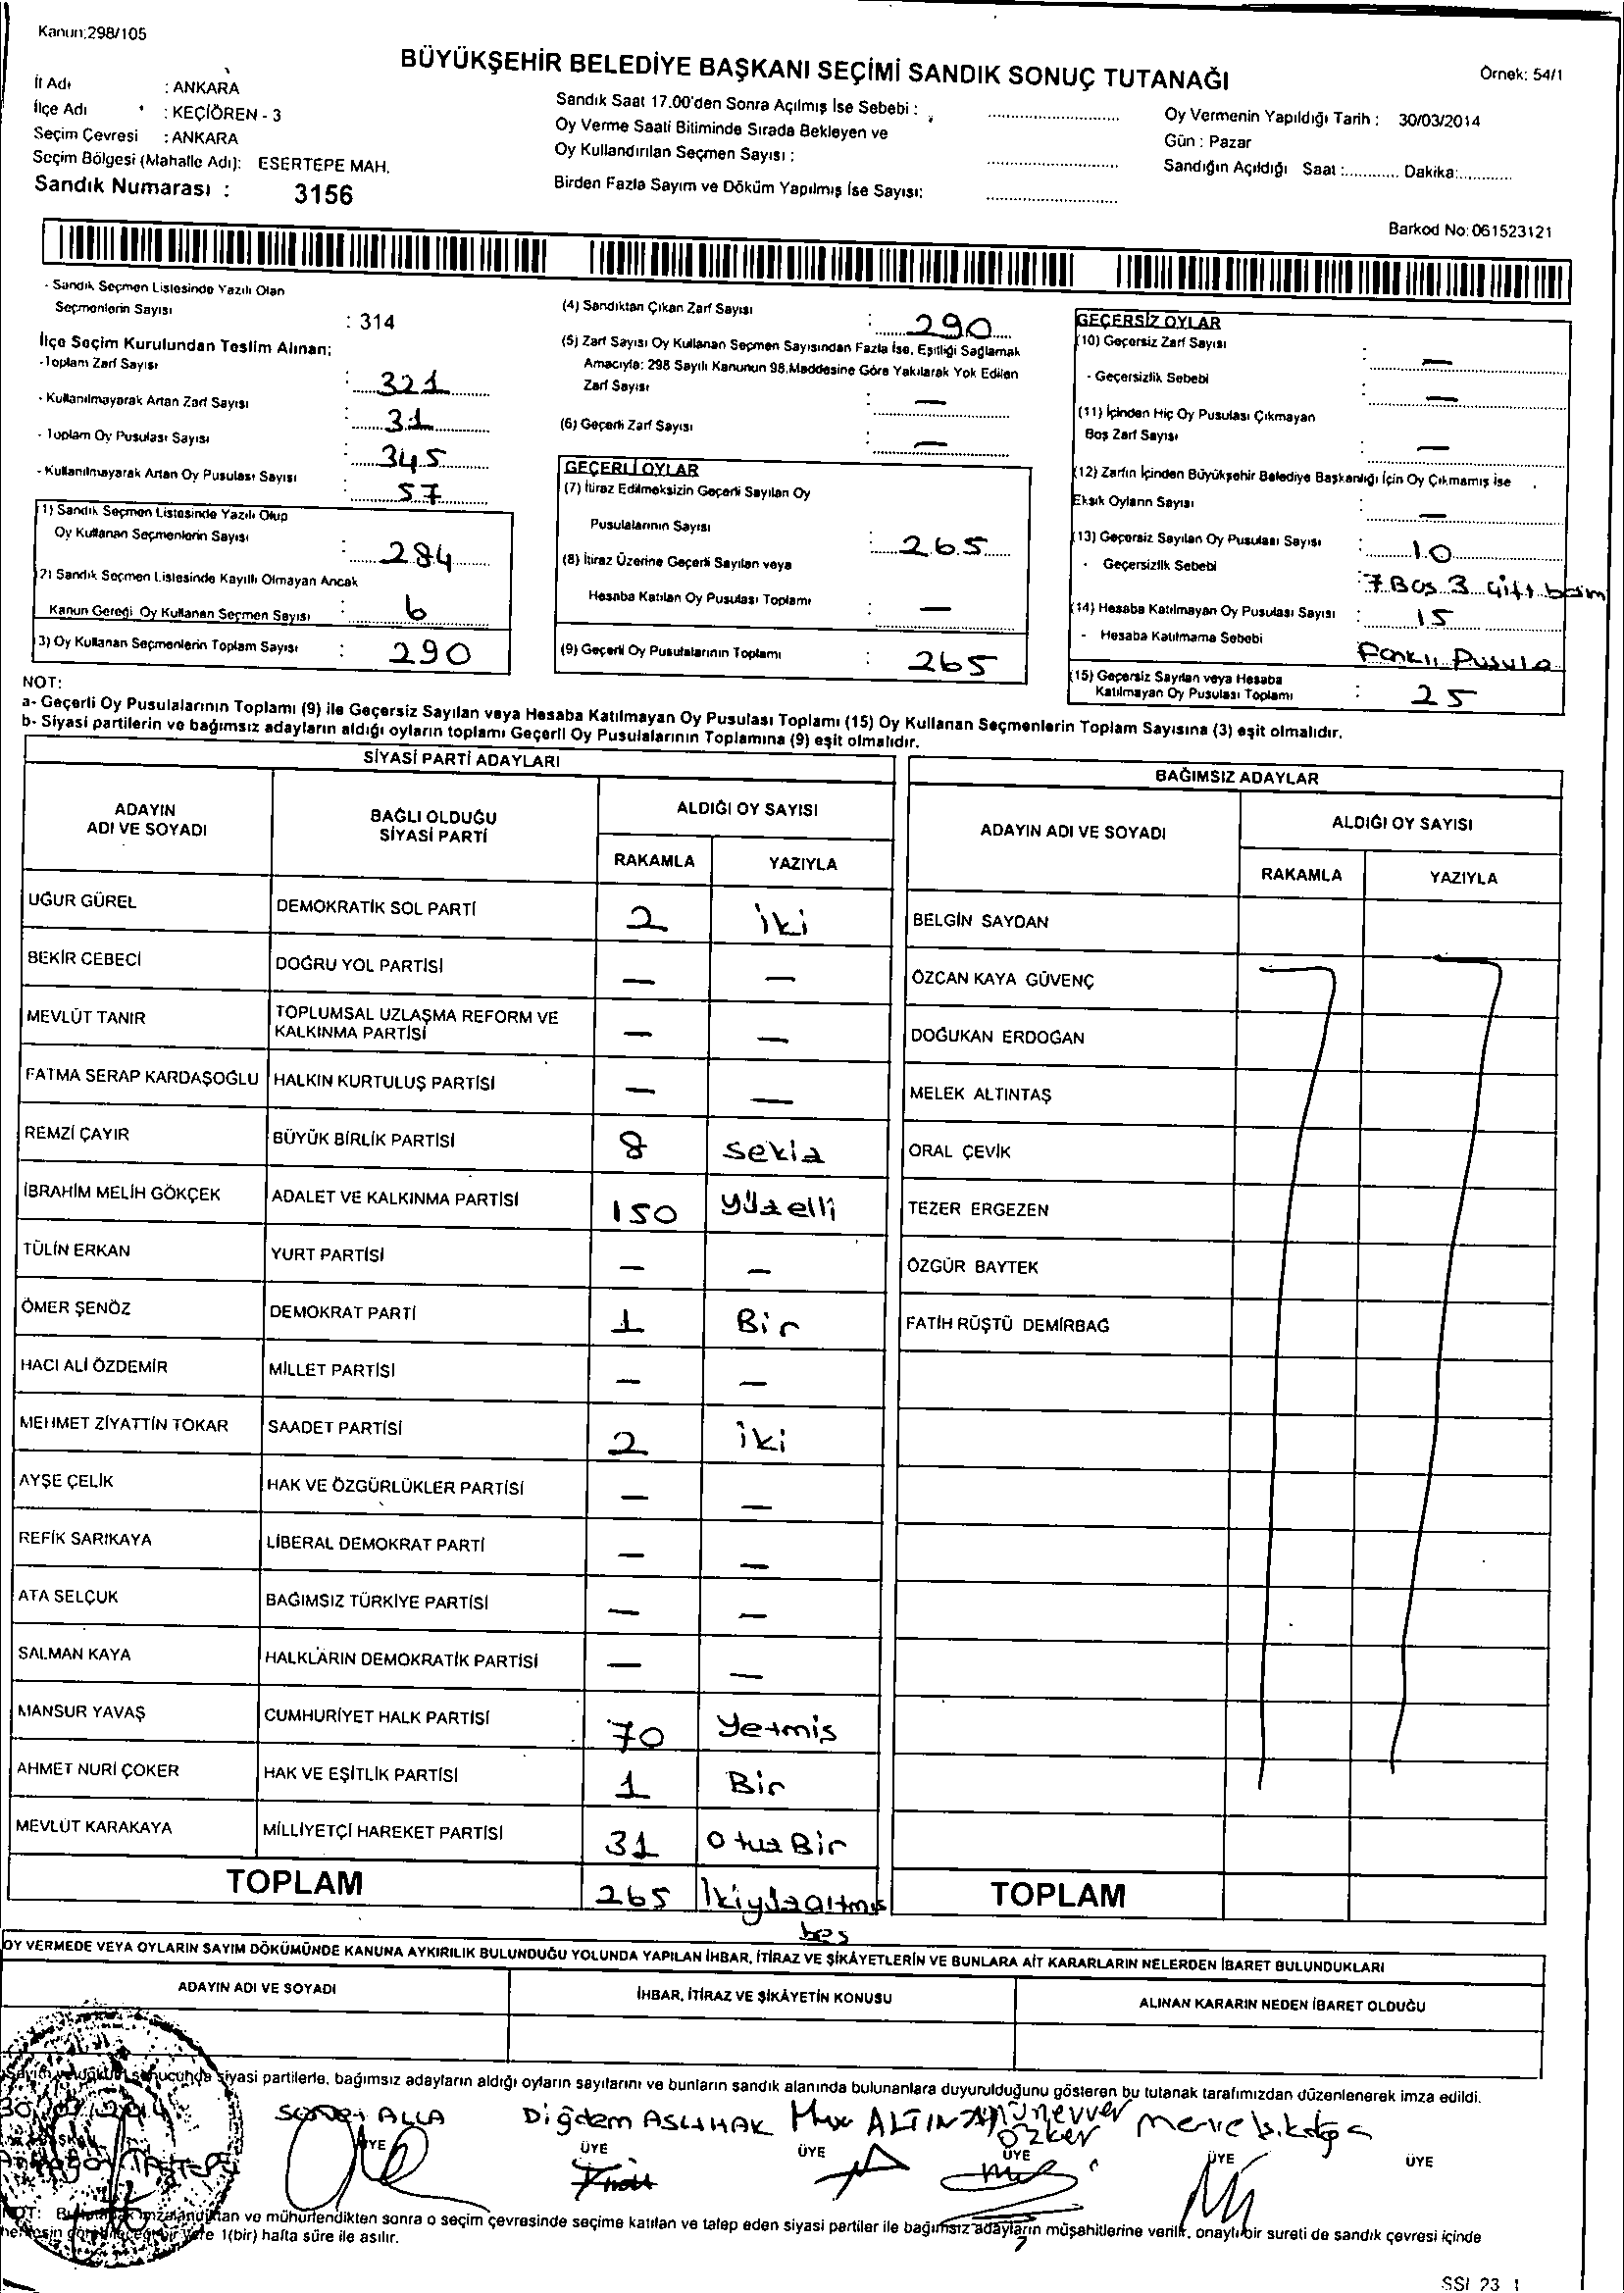 Kanun:298/105
BÜYÜKŞEHİR BELEDİYE BAŞKANI SEÇİMİ SANDIK SONUÇ TUTANAĞI
Örnek: 54/1
İl Adı : ANKARA
İlçe Adı : KEÇİÖREN - 3
Seçim Çevresi : ANKARA
Seçim Bölgesi (Mahalle Adı): ESERTEPE MAH.
Sandık Numarası : 3156
Sandık Saat 17.00'den Sonra Açılmış İse Sebebi :
Oy Verme Saati Bitiminde Sırada Bekleyen ve
Oy Kullandırılan Seçmen Sayısı :
Birden Fazla Sayım ve Döküm Yapılmış İse Sayısı:
Oy Vermenin Yapıldığı Tarih : 30/03/2014
Gün : Pazar
Sandığın Açıldığı Saat :............ Dakika:............
Barkod No:061523121
- Sandık Seçmen Listesinde Yazılı Olan
Seçmenlerin Sayısı : 314
İlçe Seçim Kurulundan Teslim Alınan:
-Toplam Zarf Sayısı : 321
- Kullanılmayarak Artan Zarf Sayısı : 31
- Toplam Oy Pusulası Sayısı : 345
- Kullanılmayarak Artan Oy Pusulası Sayısı : 57
(1) Sandık Seçmen Listesinde Yazılı Olup
Oy Kullanan Seçmenlerin Sayısı : 284
(2) Sandık Seçmen Listesinde Kayıtlı Olmayan Ancak
Kanun Gereği Oy Kullanan Seçmen Sayısı : 6
(3) Oy Kullanan Seçmenlerin Toplam Sayısı : 290
(4) Sandıktan Çıkan Zarf Sayısı : 290
(5) Zarf Sayısı Oy Kullanan Seçmen Sayısından Fazla İse, Eşitliği Sağlamak
Amacıyla: 298 Sayılı Kanunun 98.Maddesine Göre Yakılarak Yok Edilen
Zarf Sayısı : —
(6) Geçerli Zarf Sayısı : —
GEÇERLİ OYLAR
(7) İtiraz Edilmeksizin Geçerli Sayılan Oy
Pusulalarının Sayısı : 265
(8) İtiraz Üzerine Geçerli Sayılan veya
Hesaba Katılan Oy Pusulası Toplamı : —
(9) Geçerli Oy Pusulalarının Toplamı : 265
GEÇERSİZ OYLAR
(10) Geçersiz Zarf Sayısı : —
- Geçersizlik Sebebi : —
(11) İçinden Hiç Oy Pusulası Çıkmayan
Boş Zarf Sayısı : —
(12) Zarfın İçinden Büyükşehir Belediye Başkanlığı İçin Oy Çıkmamış ise
Eksik Oyların Sayısı : —
(13) Geçersiz Sayılan Oy Pusulası Sayısı : 10
- Geçersizlik Sebebi : 7 Boş 3 çift basım
(14) Hesaba Katılmayan Oy Pusulası Sayısı : 15
- Hesaba Katılmama Sebebi Farklı Pusula
(15) Geçersiz Sayılan veya Hesaba
Katılmayan Oy Pusulası Toplamı : 25
NOT:
a- Geçerli Oy Pusulalarının Toplamı (9) ile Geçersiz Sayılan veya Hesaba Katılmayan Oy Pusulası Toplamı (15) Oy Kullanan Seçmenlerin Toplam Sayısına (3) eşit olmalıdır.
b- Siyasi partilerin ve bağımsız adayların aldığı oyların toplamı Geçerli Oy Pusulalarının Toplamına (9) eşit olmalıdır.
SİYASİ PARTİ ADAYLARI
ADAYIN ADI VE SOYADI
BAĞLI OLDUĞU SİYASİ PARTİ
ALDIĞI OY SAYISI
RAKAMLA YAZIYLA
UĞUR GÜREL DEMOKRATİK SOL PARTİ 2 iki
BEKİR CEBECİ DOĞRU YOL PARTİSİ — —
MEVLÜT TANIR TOPLUMSAL UZLAŞMA REFORM VE KALKINMA PARTİSİ — —
FATMA SERAP KARDAŞOĞLU HALKIN KURTULUŞ PARTİSİ — —
REMZİ ÇAYIR BÜYÜK BİRLİK PARTİSİ 8 sekiz
İBRAHİM MELİH GÖKÇEK ADALET VE KALKINMA PARTİSİ 150 yüzelli
TÜLİN ERKAN YURT PARTİSİ — —
ÖMER ŞENÖZ DEMOKRAT PARTİ 1 Bir
HACI ALİ ÖZDEMİR MİLLET PARTİSİ — —
MEHMET ZİYATTİN TOKAR SAADET PARTİSİ 2 iki
AYŞE ÇELİK HAK VE ÖZGÜRLÜKLER PARTİSİ — —
REFİK SARIKAYA LİBERAL DEMOKRAT PARTİ — —
ATA SELÇUK BAĞIMSIZ TÜRKİYE PARTİSİ — —
SALMAN KAYA HALKLARIN DEMOKRATİK PARTİSİ — —
MANSUR YAVAŞ CUMHURİYET HALK PARTİSİ 70 Yetmiş
AHMET NURİ ÇOKER HAK VE EŞİTLİK PARTİSİ 1 Bir
MEVLÜT KARAKAYA MİLLİYETÇİ HAREKET PARTİSİ 31 OtuzBir
TOPLAM 265 İkiyüzaltmış
beş
BAĞIMSIZ ADAYLAR
ADAYIN ADI VE SOYADI
ALDIĞI OY SAYISI
RAKAMLA YAZIYLA
BELGİN SAYDAN
ÖZCAN KAYA GÜVENÇ
DOĞUKAN ERDOĞAN
MELEK ALTINTAŞ
ORAL ÇEVİK
TEZER ERGEZEN
ÖZGÜR BAYTEK
FATİH RÜŞTÜ DEMİRBAĞ
TOPLAM
OY VERMEDE VEYA OYLARIN SAYIM DÖKÜMÜNDE KANUNA AYKIRILIK BULUNDUĞU YOLUNDA YAPILAN İHBAR, İTİRAZ VE ŞİKÂYETLERİN VE BUNLARA AİT KARARLARIN NELERDEN İBARET BULUNDUKLARI
ADAYIN ADI VE SOYADI İHBAR, İTİRAZ VE ŞİKÂYETİN KONUSU ALINAN KARARIN NEDEN İBARET OLDUĞU
Sayım ve döküm sonucunda siyasi partilerle, bağımsız adayların aldığı oyların sayılarını ve bunların sandık alanında bulunanlara duyurulduğunu gösteren bu tutanak tarafımızdan düzenlenerek imza edildi.
Diğdem ASLIHAK ALTINTAŞ Münevver
Özker Merve
ÜYE ÜYE ÜYE ÜYE ÜYE ÜYE
NOT: Bu tutanak imzalandıktan ve mühürlendikten sonra o seçim çevresinde seçime katılan ve talep eden siyasi partiler ile bağımsız adayların müşahitlerine verilir, onaylı bir sureti de sandık çevresi içinde
herkesin görebileceği bir yere 1(bir) hafta süre ile asılır.
SSI 23 1